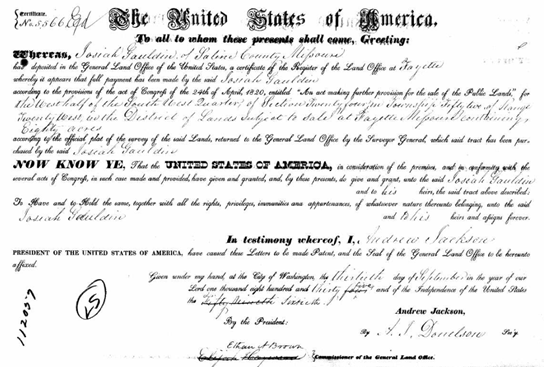 Certificate.
No. 5566
The United States of America.
To all to whom these presents shall come, Greeting:
Whereas, Josiah Gauldin, of Saline County Missouri
has deposited in the General Land Office of the United States, a certificate of the Register of the Land Office at Fayette
whereby it appears that full payment has been made by the said Josiah Gauldin
according to the provisions of the act of Congress of the 24th of April, 1820, entitled "An act making further provision for the sale of the Public Lands," for
the West half of the South West Quarter, of Section Twenty four, in Township Fifty two, of Range
Twenty West, in the District of Lands Subject to Sale at Fayette Missouri containing
Eighty acres
according to the official plat of the survey of the said Lands, returned to the General Land Office by the Surveyor General, which said tract has been pur-
chased by the said Josiah Gauldin
NOW KNOW YE, That the UNITED STATES OF AMERICA, in consideration of the premises, and in conformity with the
several acts of Congress, in such case made and provided, have given and granted, and, by these presents, do give and grant, unto the said Josiah Gauldin
and to his heirs, the said tract above described:
To Have and to Hold the same, together with all the rights, privileges, immunities and appurtenances, of whatsoever nature thereunto belonging, unto the said
Josiah Gauldin and to his heirs and assigns forever.
In testimony whereof, I, Andrew Jackson
PRESIDENT OF THE UNITED STATES OF AMERICA, have caused these Letters to be made Patent, and the Seal of the General Land Office to be hereunto
affixed.
Given under my hand, at the City of Washington, the thirtieth day of September in the year of our
Lord one thousand eight hundred and thirty five and of the Independence of the United States
the Sixtieth
Andrew Jackson,
By the President:
By A. J. Donelson Sec'y.
Ethan A Brown
Elijah Hayward Commissioner of the General Land Office.
112037